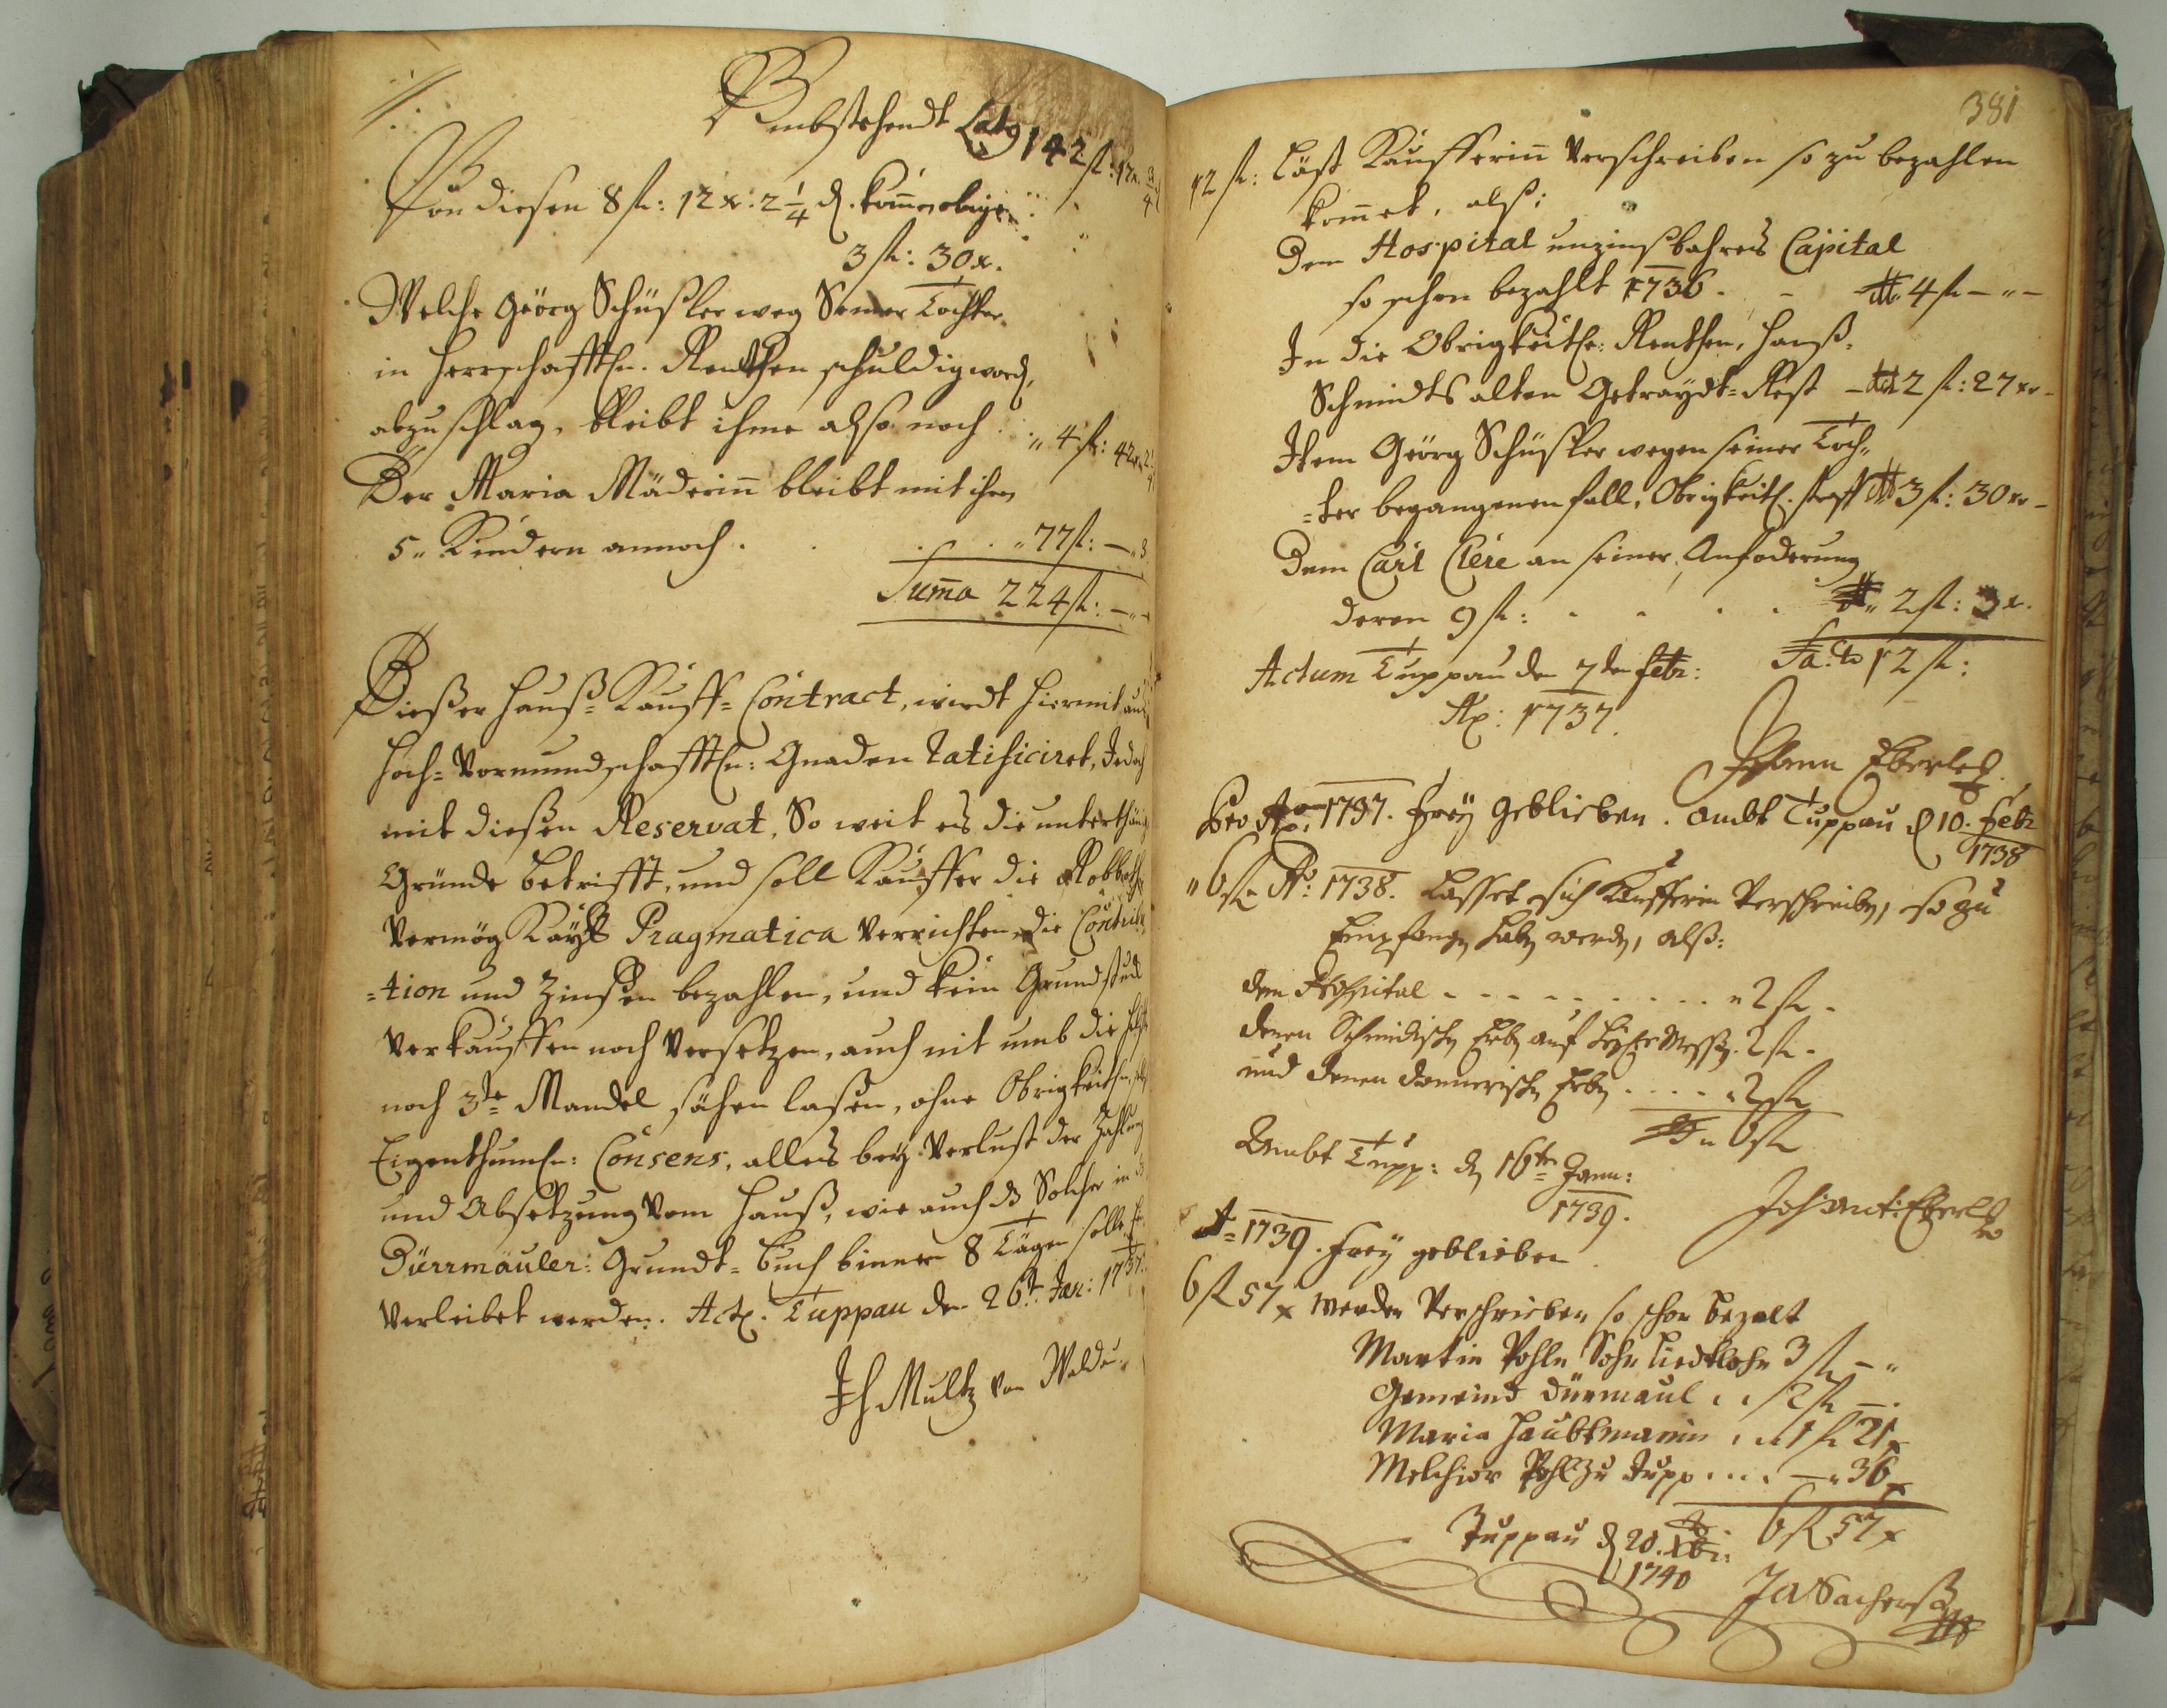 Umbstehendt Latg 142 fl: 12 x
Von diesen 8 fl: 12 x: 2 1/4 d. komen obige
3 fl: 30 x.
Welche Geörg Schüßler weg Seiner Tochter
in herrschafftln. Renthen schuldig word,
abzuschlag, bleibt ihme also noch . . „ 4 fl: 42 x 2 1/4
Der Maria Mäderin bleibt mit ihren
5 „ Kindern annoch . . . . „ 77 fl: — „ 3
Suma 224 fl: — „ —
Dießer Hauß-Kauff-Contract, wirdt hiermit auß
Hoch-Vormundschafftln: Gnaden ratificiret, Jedoch
mit dießen Reservat, So weit es die unterthänig
Gründe betrifft, und soll Kauffer die Robbath
Vermög Kayßl Pragmatica verrichten, die Contribu
=tion und Zinßen bezahlen, und kein Grundstuck
Verkauffen noch versetzen, auch nit umb die helfte
noch 3te Mandel sähen laßen, ohne Obrigkeitln.
Eigenthumln: Consens, alles bey Verlust der Zahlung
und Absetzung vom Hauß, wie auch d Solcher in d
Dürrmäuler: Grundt-buch binnen 8 Tägen solle
Verleibet werden. Act. Tuppau den 26t. Jan: 1737.
Multz von Waldau
381
12 fl: Läst Kaufferin Verschreiben so zu bezahlen
kommet, alß:
Dem Hospital unzinßbahres Capital
so schon bezahlt 1736 . - 4 fl — „ —
In die Obrigkeitl: Renthen, Hanß
Schmidts alten Getraydt-Rest — 2 fl: 27 xr —
Item Geörg Schüßler wegen seiner Toch=
=ter begangenen fall, Obrigkeitl. straff 3 fl: 30 xr —
Dem Carl Clere an seiner Anfoderung
deren 9 fl: . . . . „ 2 fl: 3 x.
Actum Tuppau den 7ten febr: Sa. 12 fl:
Ao: 1737.
Johann Eberle
Pro Ao. 1737. frey geblieben. Ambt Tuppau d 10. febr
1738
„ 6 fl Ao: 1738. Lasset sich Kaufferin Verschreiben, so zu
Empfangen haben werden, alß:
dem Hospital . . . . . . . . „ 2 fl .
denen Schmidischen Erben auf 2 fl .
und denen Erben . . . . „ 2 fl
6 fl
Ambt Tupp: d 16te Janu:
1739. Joh: Ant: Eberle
Ao 1739. frey geblieben
6 fl 57 x werden Verschrieben so schon bezalt
Martin Pohln Sohn Liedtlohn 3 fl — „
Gemeind Dürmaul . . 2 fl — .
Maria Haubtmanin . . 1 fl 21 x
Melchior Pohl zu Tupp . . . — „ 36 x
6 fl 57 x
Tuppau d 20. Xbr:
1740
JASachers